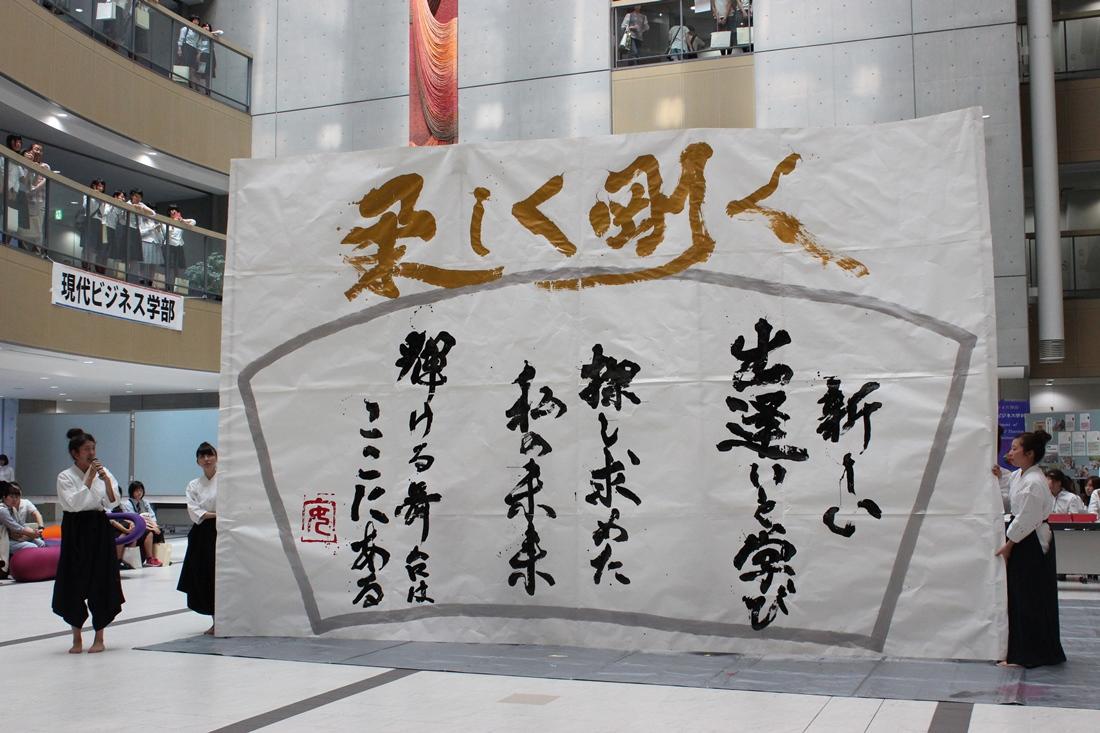 柔しく剛く
新しい
出逢いと学び
探し求めた
私の未来
輝ける舞台は
ここにある
現代ビジネス学部